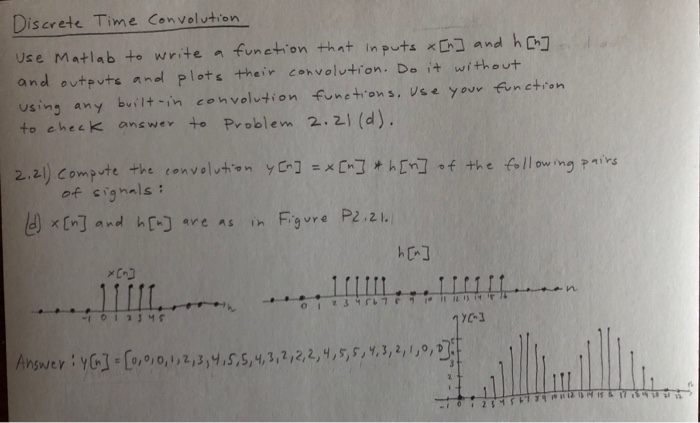 Discrete Time Convolution
Use Matlab to write a function that inputs x[n] and h[n]
and outputs and plots their convolution. Do it without
using any built-in convolution functions. Use your function
to check answer to Problem 2.21(d).
2.21) Compute the convolution y[n] = x[n] * h[n] of the following pairs
of signals:
(d) x[n] and h[n] are as in Figure P2.21.
x[n]
-1 0 1 2 3 4 5 n
h[n]
0 1 2 3 4 5 6 7 8 9 10 11 12 13 14 15 16 n
y[n]
Answer: y[n] = [0,0,0,1,2,3,4,5,5,4,3,2,2,2,4,5,5,4,3,2,1,0,0]
-1 0 1 2 3 4 5 6 7 8 9 10 11 12 13 14 15 16 17 18 19 20 21 22